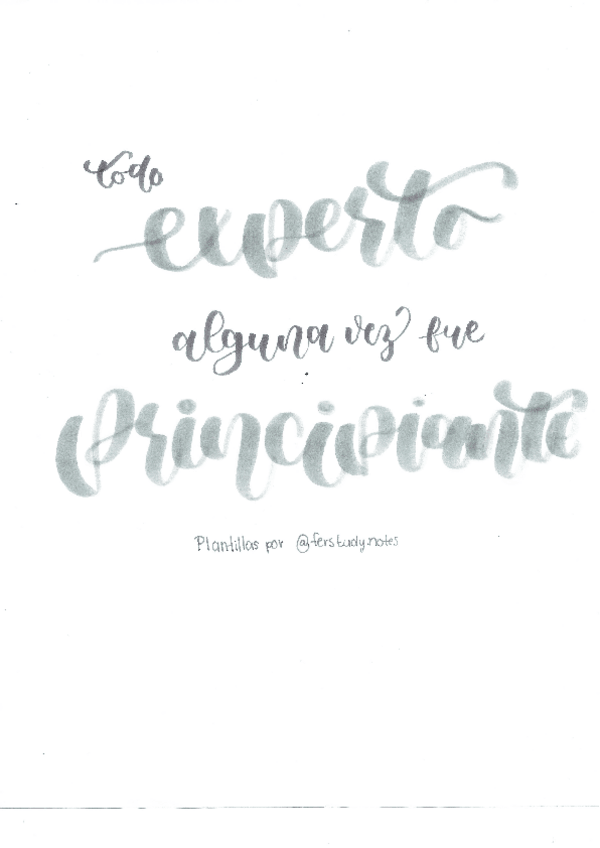 todo
experto
alguna vez fue
principiante
Plantillas por @ferstudy.notes